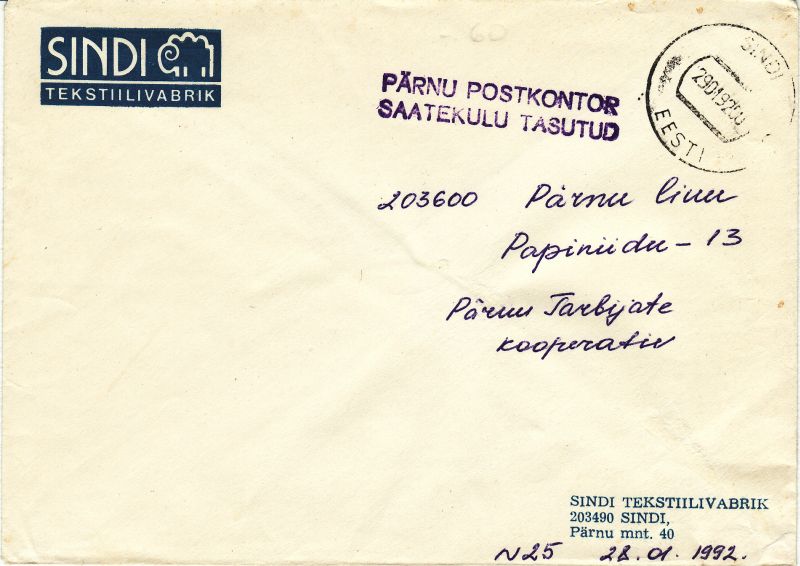 SINDI
TEKSTIILIVABRIK
- 60
PÄRNU POSTKONTOR
SAATEKULU TASUTUD
SINDI
EESTI
203600 Pärnu linn
Papiniidu - 13
Pärnu Tarbijate
kooperatiiv
SINDI TEKSTIILIVABRIK
203490 SINDI,
Pärnu mnt. 40
N25 28.01.1992.